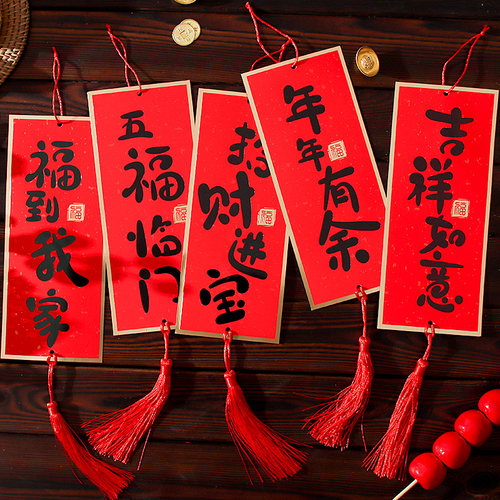 福到我家
五福临门
招财进宝
年年有余
吉祥如意
福
福
福
福
福